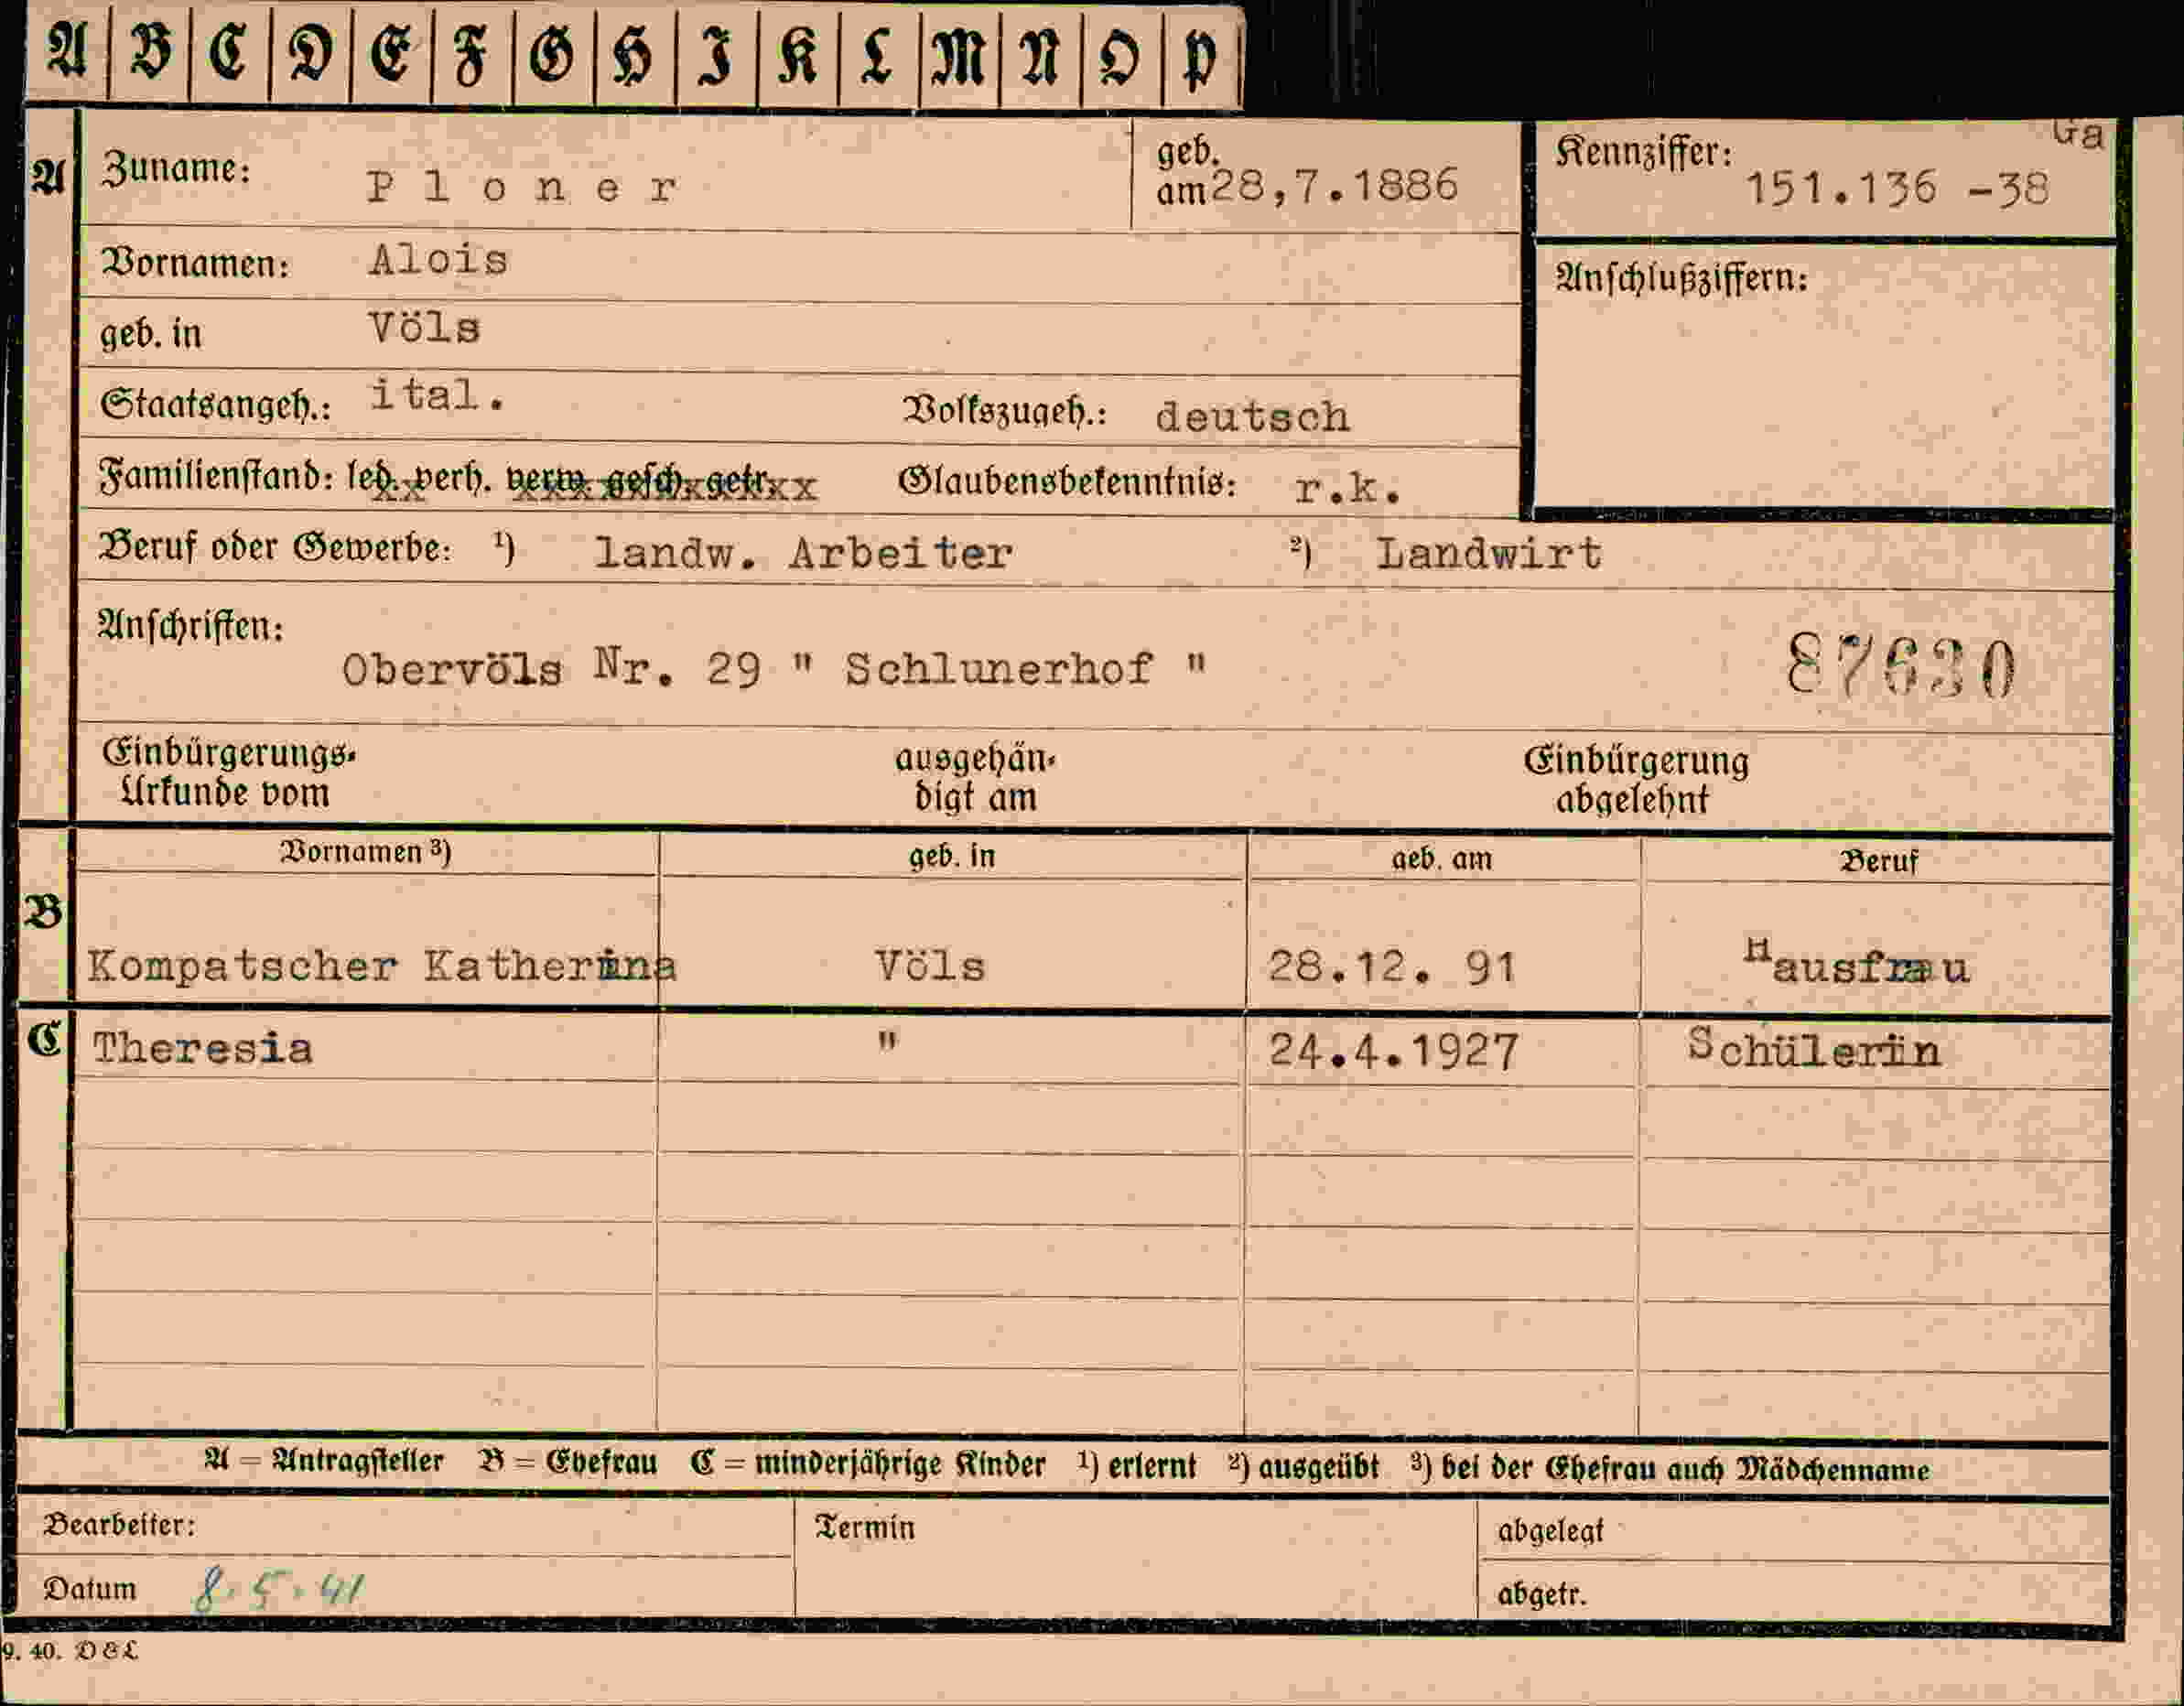 A B C D E F G H I K L M N O P
Ga
A Zuname: Ploner geb. am 28,7.1886 Kennziffer: 151.136 -38
Vornamen: Alois Anschlußziffern:
geb. in Völs
Staatsangeh.: ital. Volkszugeh.: deutsch
Familienstand: led. verh. verw. gesch. getr. Glaubensbekenntnis: r.k.
Beruf oder Gewerbe: ¹) landw. Arbeiter ²) Landwirt
Anschriften:
Obervöls Nr. 29 " Schlunerhof " 87630
Einbürgerungs- ausgehän- Einbürgerung
Urkunde vom digt am abgelehnt
Vornamen ³) geb. in geb. am Beruf
B
Kompatscher Katherina Völs 28.12. 91 Hausfrau
C Theresia " 24.4.1927 Schülerin
A = Antragsteller B = Ehefrau C = minderjährige Kinder ¹) erlernt ²) ausgeübt ³) bei der Ehefrau auch Mädchenname
Bearbeiter: Termin abgelegt
Datum 8.5.41 abgetr.
9. 40. D&L